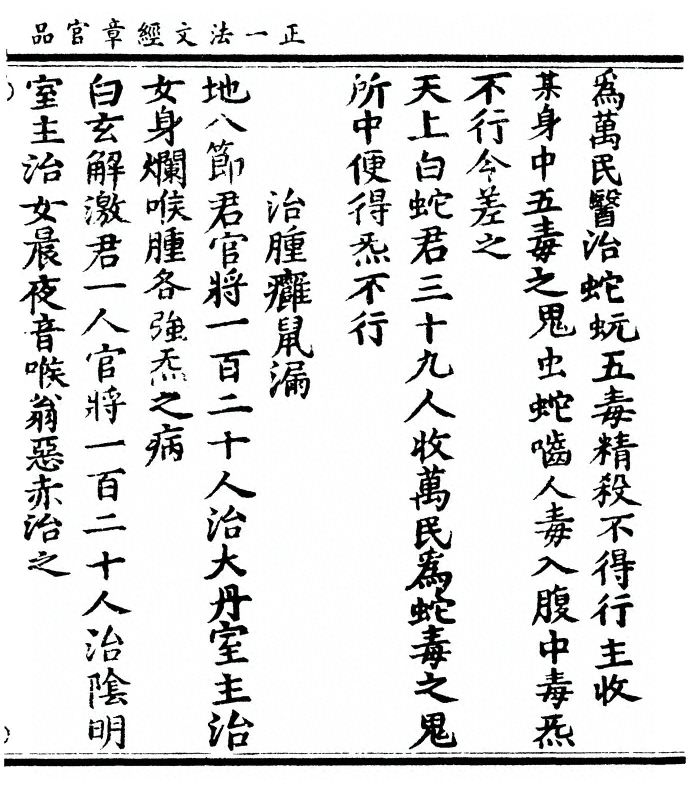 正一法文經章官品
為萬民醫治蛇蚖五毒精殺不得行主收
某身中五毒之鬼虫蛇嚙人毒入腹中毒炁
不行令差之
天上白蛇君三十九人收萬民為蛇毒之鬼
所中便得炁不行
治腫癰鼠漏
地八節君官將一百二十人治大丹室主治
女身爛喉腫各強炁之病
白玄解激君一人官將一百二十人治陰明
室主治女晨夜音喉翁惡赤治之